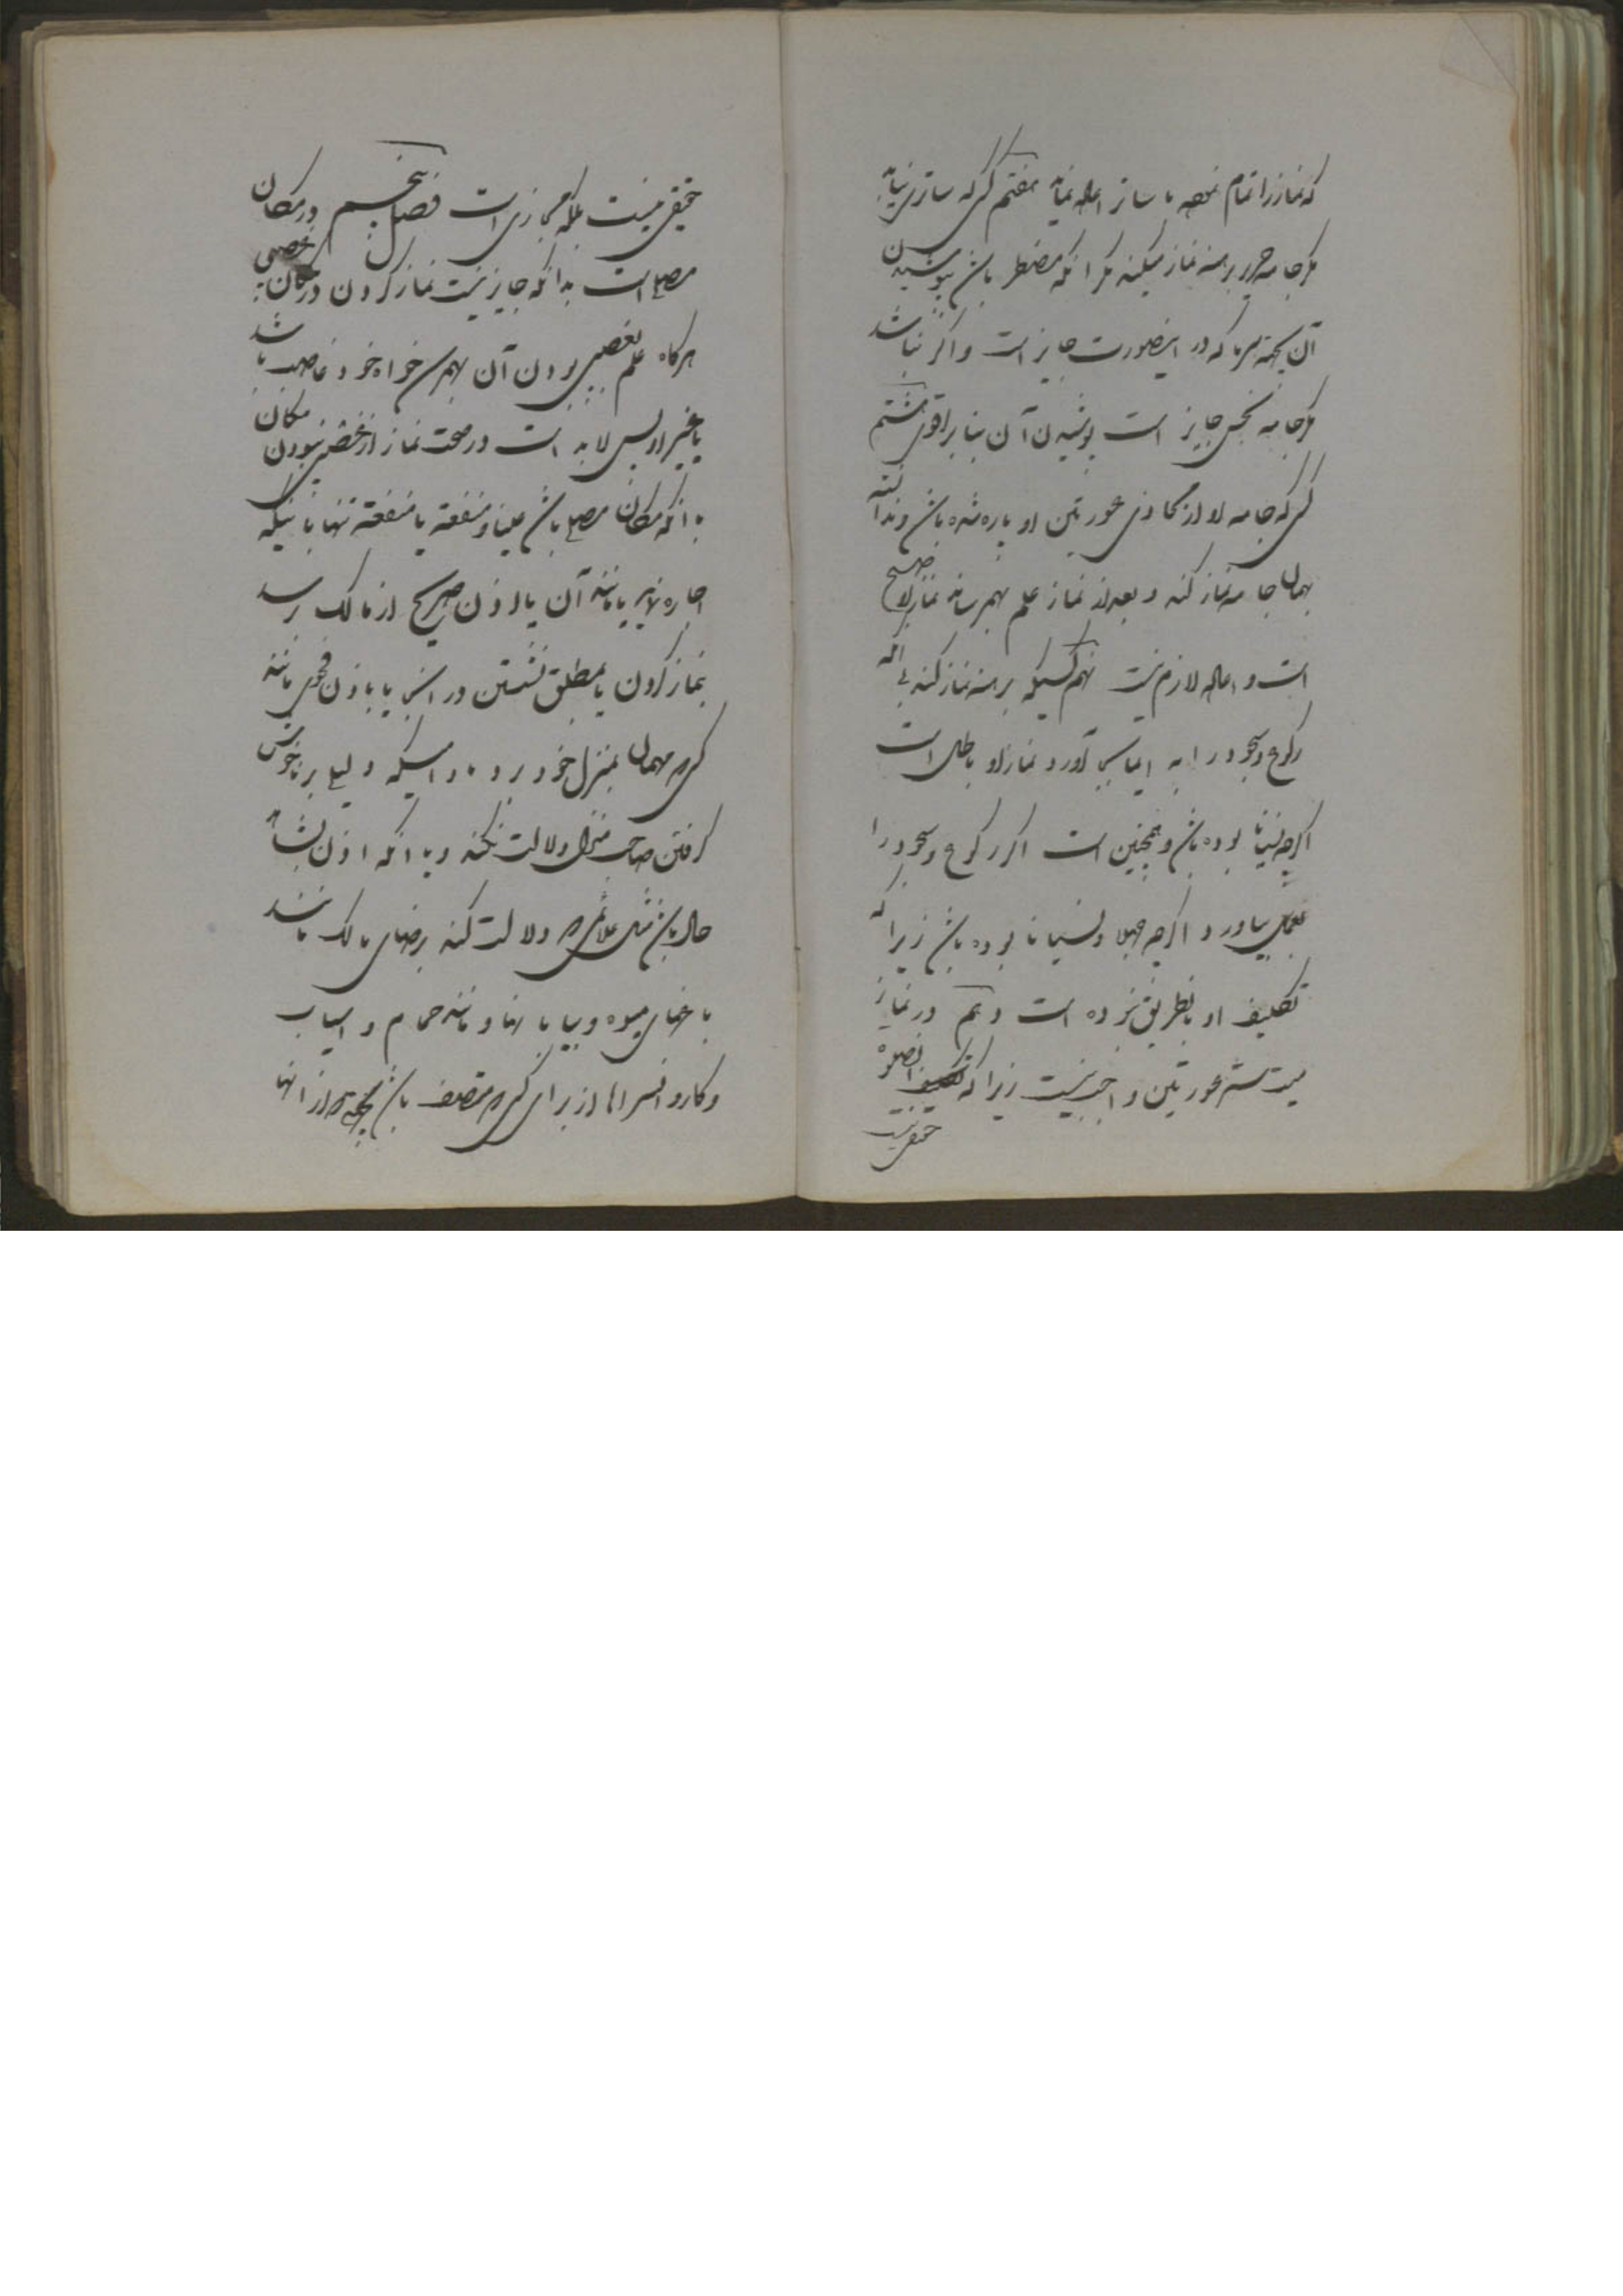 که نماز را تمام نموده با ساتر اعاده نماید هفتم کسی که ساتری نیابد
مگر جامه حریر برهنه نماز میکند مگر آنکه مضطر باشد بپوشیدن
آن بجهة سرما که در اینصورت جایز است و اگر نباشد
مگر جامه نجس جایز است پوشیدن آن بنابر اقوی هشتم
کسی که جامه او از محاذی عورتین او پاره شده باشد و ندانسته
بهمان جامه نماز کند و بعد از نماز علم بهم رساند نماز او صحیح
است و اعاده لازم نیست نهم کسیکه برهنه نماز کند بی آنکه
رکوع و سجود را به ایما بجا آورد نماز او باطل است
اگرچه نسیانا بوده باشد و همچنین است اگر رکوع و سجود را
بعمل بیاورد و اگرچه جهلا و نسیانا بوده باشد زیرا که
تکلیف او باینطریق نبوده است دهم در نماز
میت ستر عورتین واجب نیست زیرا که صلوة
حقیقی نیست
حقیقی نیست بلکه مجازی است فصل پنجم در مکان
مصلی است بدانکه جایز نیست نماز کردن در مکان غصبی
هرگاه علم بغصبی بودن آن بهم رسد خواه خود غاصب باشد
یا غیر او پس لابد است در صحت نماز از غصبی نبودن مکان
به آنکه مکان مصلی باشد عینا و منفعة یا منفعة تنها باینکه
اجاره یا مانند آن یا اذن صریح از مالک رسد
بنماز کردن یا مطلق نشستن در آنجا یا باذن فحوی مانند
کسی که مهمان بمنزل خود برد مادامیکه دلیلی بر ناخوش
گرفتن صاحب منزل دلالت نکند و یا آنکه اذن بشاهد
حال باشد مثل علامتی که دلالت کند برضای مالک مانند
باغهای میوه و بیابانها و مانند حمام و آسیاب
و کاروانسراها از برای کسی که متصف باشد بجهتی که از آنها